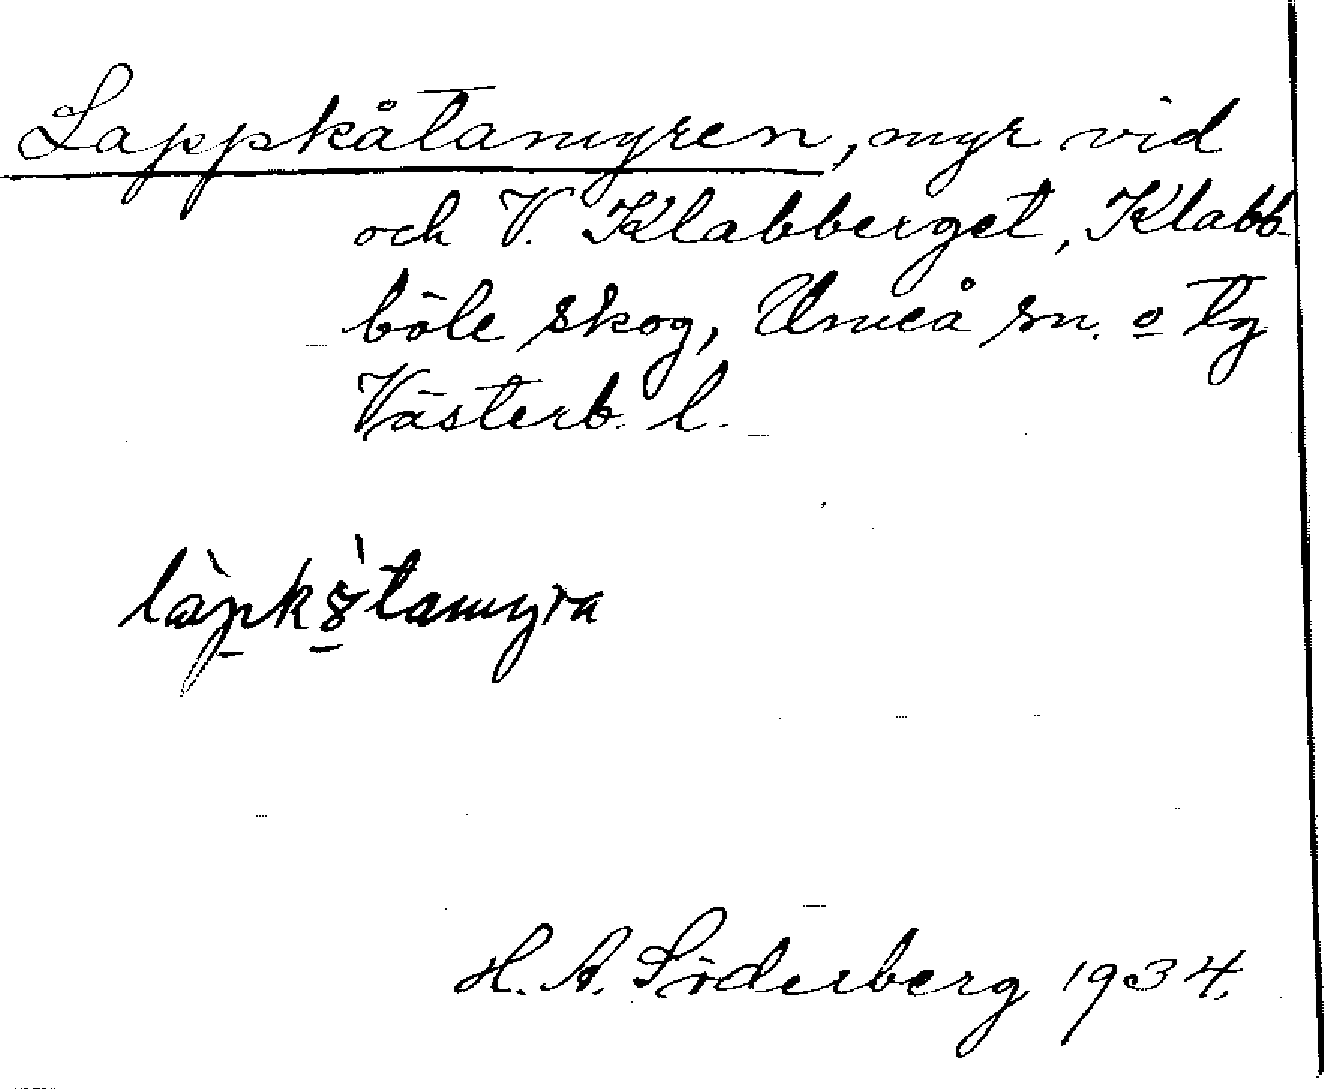 Lappkåtamyren, myr vid
och V. Klabberget, Klabb-
böle skog, Umeå sn. o tg
Västerb. l.
H. A. Söderberg 1934.